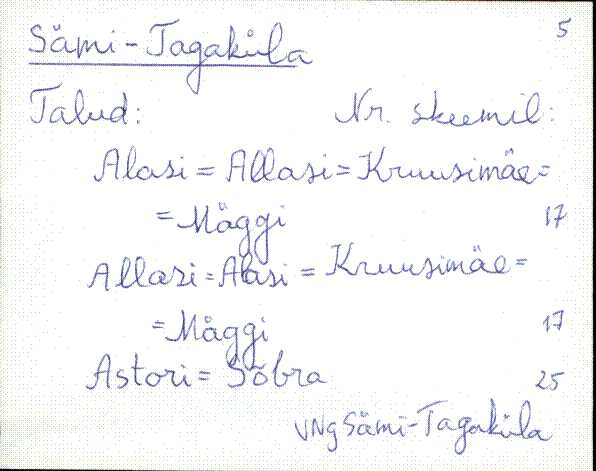 5
Sämi-Tagaküla
Talud: Nr. skeemil:
Alasi = Allasi = Kruusimäe =
= Mäggi 17
Allasi = Alasi = Kruusimäe =
= Mäggi 17
Astori = Sõbra 25
VNg Sämi-Tagaküla